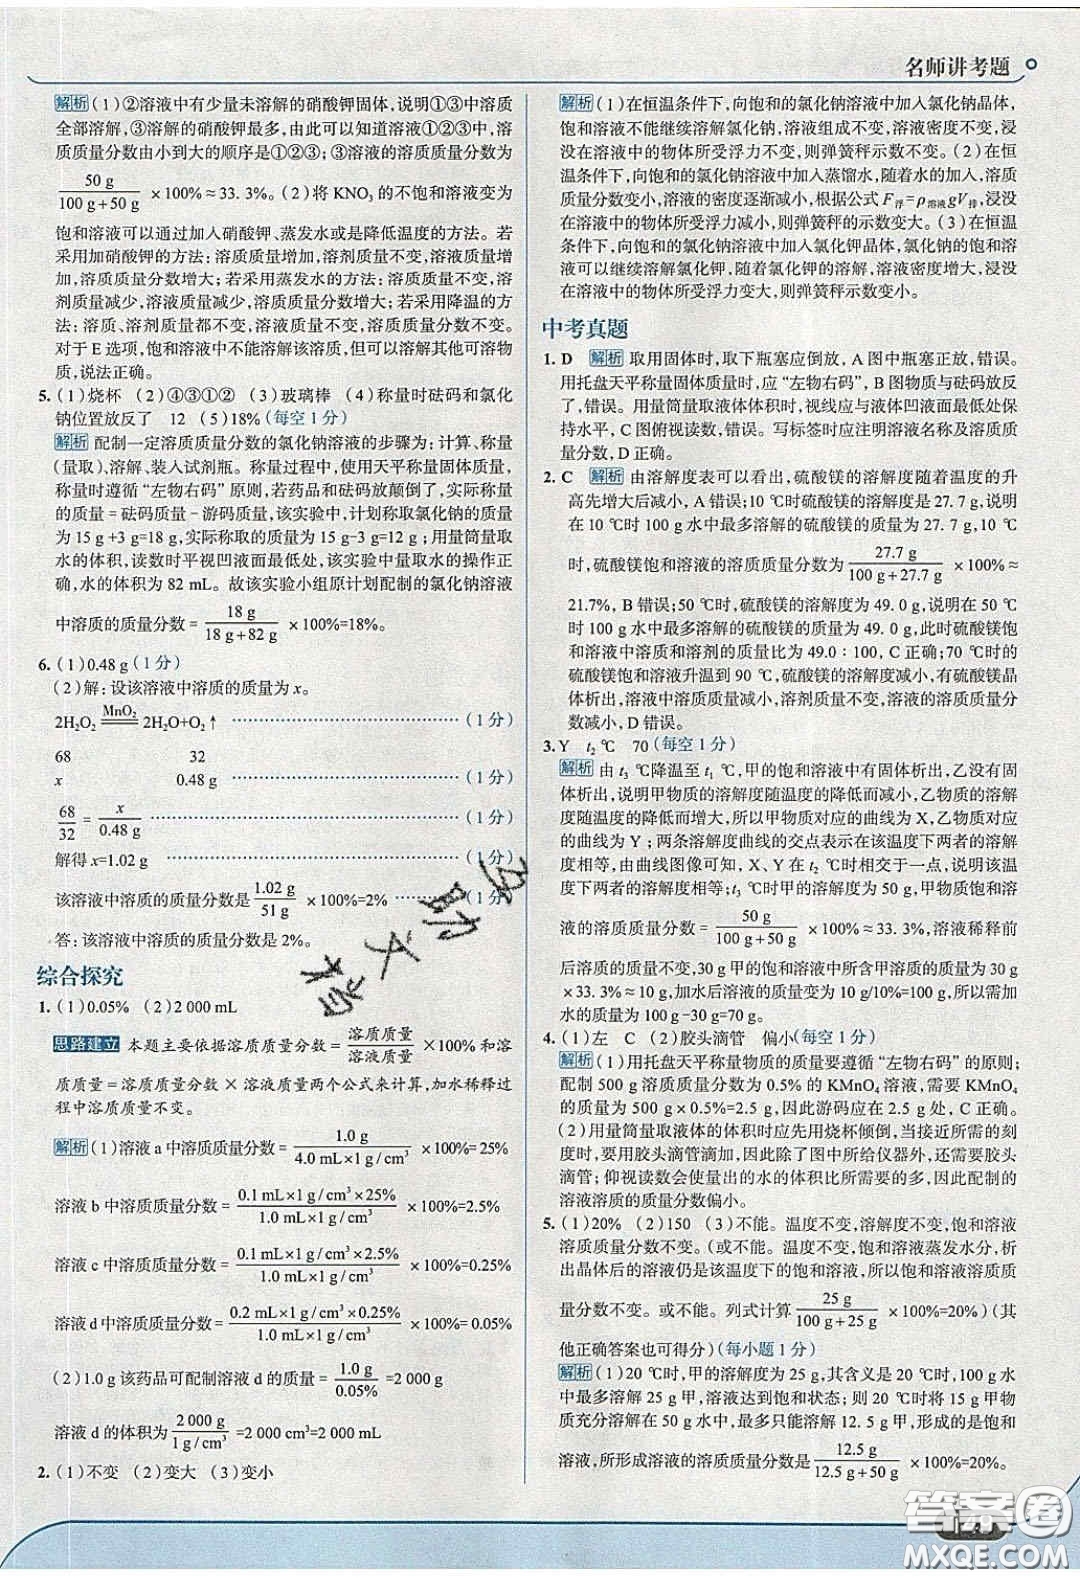 名师讲考题
解析(1)②溶液中有少量未溶解的硝酸钾固体，说明①③中溶质
全部溶解，③溶解的硝酸钾最多，由此可以知道溶液①②③中，溶
质质量分数由小到大的顺序是①②③；③溶液的溶质质量分数为
50 g/(100 g+50 g) ×100%≈33.3%。(2)将 KNO₃ 的不饱和溶液变为
饱和溶液可以通过加入硝酸钾、蒸发水或是降低温度的方法。若
采用加硝酸钾的方法：溶质质量增加，溶剂质量不变，溶液质量增
加，溶质质量分数增大；若采用蒸发水的方法：溶质质量不变，溶
剂质量减少，溶液质量减少，溶质质量分数增大；若采用降温的方
法：溶质、溶剂质量都不变，溶液质量不变，溶质质量分数不变。
对于 E 选项，饱和溶液中不能溶解该溶质，但可以溶解其他可溶物
质，说法正确。
5. (1)烧杯 (2)④③①② (3)玻璃棒 (4)称量时砝码和氯化
钠位置放反了 12 (5)18%(每空 1 分)
解析 配制一定溶质质量分数的氯化钠溶液的步骤为：计算、称量
(量取)、溶解、装入试剂瓶。称量过程中，使用天平称量固体质量，
称量时遵循“左物右码”原则，若药品和砝码放颠倒了，实际称量
的质量＝砝码质量－游码质量，该实验中，计划称取氯化钠的质量
为 15 g +3 g=18 g，实际称取的质量为 15 g-3 g=12 g；用量筒量取
水的体积，读数时平视凹液面最低处，该实验中量取水的操作正
确，水的体积为 82 mL。故该实验小组原计划配制的氯化钠溶液
中溶质的质量分数＝ 18 g/(18 g+82 g) ×100%=18%。
6. (1)0.48 g(1 分)
(2)解：设该溶液中溶质的质量为 x。
2H₂O₂ =MnO₂= 2H₂O+O₂↑ ……(1 分)
68 32
x 0.48 g ……(1 分)
68/32 = x/0.48 g ……(1 分)
解得 x=1.02 g ……(1 分)
该溶液中溶质的质量分数是 1.02 g/51 g ×100%=2% ……(1 分)
答：该溶液中溶质的质量分数是 2%。
综合探究
1. (1)0.05% (2)2 000 mL
思路建立 本题主要依据溶质质量分数＝ 溶质质量/溶液质量 ×100% 和溶
质质量＝溶质质量分数×溶液质量两个公式来计算，加水稀释过
程中溶质质量不变。
解析(1)溶液 a 中溶质质量分数＝ 1.0 g/(4.0 mL×1 g/cm³) ×100%=25%
溶液 b 中溶质质量分数＝ (0.1 mL×1 g/cm³×25%)/(1.0 mL×1 g/cm³) ×100%=2.5%
溶液 c 中溶质质量分数＝ (0.1 mL×1 g/cm³×2.5%)/(1.0 mL×1 g/cm³) ×100%=0.25%
溶液 d 中溶质质量分数＝ (0.2 mL×1 g/cm³×0.25%)/(1.0 mL×1 g/cm³) ×100%=0.05%
(2)1.0 g 该药品可配制溶液 d 的质量＝ 1.0 g/0.05% =2 000 g
溶液 d 的体积为 2 000 g/(1 g/cm³) =2 000 cm³=2 000 mL
2. (1)不变 (2)变大 (3)变小
解析(1)在恒温条件下，向饱和的氯化钠溶液中加入氯化钠晶体，
饱和溶液不能继续溶解氯化钠，溶液组成不变，溶液密度不变，浸
没在溶液中的物体所受浮力不变，则弹簧秤示数不变。(2)在恒
温条件下，向饱和的氯化钠溶液中加入蒸馏水，随着水的加入，溶
质质量分数变小，溶液的密度逐渐减小，根据公式 F浮=ρ溶液gV排，浸没
在溶液中的物体所受浮力减小，则弹簧秤的示数变大。(3)在恒温
条件下，向饱和的氯化钠溶液中加入氯化钾晶体，氯化钠的饱和溶
液可以继续溶解氯化钾，随着氯化钾的溶解，溶液密度增大，浸没
在溶液中的物体所受浮力变大，则弹簧秤示数变小。
中考真题
1. D 解析 取用固体时，取下瓶塞应倒放，A 图中瓶塞正放，错误。
用托盘天平称量固体质量时，应“左物右码”，B 图物质与砝码放反
了，错误。用量筒量取液体体积时，视线应与液体凹液面最低处保
持水平，C 图俯视读数，错误。写标签时应注明溶液名称及溶质质
量分数，D 正确。
2. C 解析 由溶解度表可以看出，硫酸镁的溶解度随着温度的升
高先增大后减小，A 错误；10 ℃时硫酸镁的溶解度是 27.7 g，说明
在 10 ℃时 100 g 水中最多溶解的硫酸镁的质量为 27.7 g，10 ℃
时，硫酸镁饱和溶液的溶质质量分数为 27.7 g/(100 g+27.7 g) ×100%≈
21.7%，B 错误；50 ℃时，硫酸镁的溶解度为 49.0 g，说明在 50 ℃
时 100 g 水中最多溶解的硫酸镁的质量为 49.0 g，此时硫酸镁饱
和溶液中溶质和溶剂的质量比为 49.0∶100，C 正确；70 ℃时的
硫酸镁饱和溶液升温到 90 ℃，硫酸镁的溶解度减小，有硫酸镁晶
体析出，溶液中溶质质量减小，溶剂质量不变，溶液的溶质质量分
数减小，D 错误。
3. Y t₂ ℃ 70(每空 1 分)
解析 由 t₃ ℃降温至 t₁ ℃，甲的饱和溶液中有固体析出，乙没有固
体析出，说明甲物质的溶解度随温度的降低而减小，乙物质的溶解
度随温度的降低而增大，所以甲物质对应的曲线为 X，乙物质对应
的曲线为 Y；两条溶解度曲线的交点表示在该温度下两者的溶解
度相等，由曲线图像可知，X、Y 在 t₂ ℃时相交于一点，说明该温
度下两者的溶解度相等；t₃ ℃时甲的溶解度为 50 g，甲物质饱和溶
液的溶质质量分数＝ 50 g/(100 g+50 g) ×100%≈33.3%，溶液稀释前
后溶质的质量不变，30 g 甲的饱和溶液中所含甲溶质的质量为 30 g
×33.3%≈10 g，加水后溶液的质量变为 10 g/10%=100 g，所以需加
水的质量为 100 g-30 g=70 g。
4. (1)左 C (2)胶头滴管 偏小(每空 1 分)
解析(1)用托盘天平称量物质的质量要遵循“左物右码”的原则；
配制 500 g 溶质质量分数为 0.5% 的 KMnO₄ 溶液，需要 KMnO₄
的质量为 500 g×0.5%=2.5 g，因此游码应在 2.5 g 处，C 正确。
(2)用量筒量取液体的体积时应先用烧杯倾倒，当接近所需的刻
度时，要用胶头滴管滴加，因此除了图中所给仪器外，还需要胶头
滴管；仰视读数会使量出的水的体积比所需的大，因此配制的
溶液溶质的质量分数偏小。
5. (1)20% (2)150 (3)不能。温度不变，溶解度不变，饱和溶液
溶质质量分数不变。(或不能。温度不变，饱和溶液蒸发水分，析
出晶体后的溶液仍是该温度下的饱和溶液，所以饱和溶液溶质质
量分数不变。或不能。列式计算 25 g/(100 g+25 g) ×100%=20%)(其
他正确答案也可得分)(每小题 1 分)
解析(1)20 ℃时，甲的溶解度为 25 g，其含义是 20 ℃时，100 g 水
中最多溶解 25 g 甲，溶液达到饱和状态；则 20 ℃时将 15 g 甲物
质充分溶解在 50 g 水中，最多只能溶解 12.5 g 甲，形成的是饱和
溶液，所形成溶液的质量分数是 12.5 g/(12.5 g+50 g) ×100%=20%。
答案圈
MXQE.COM